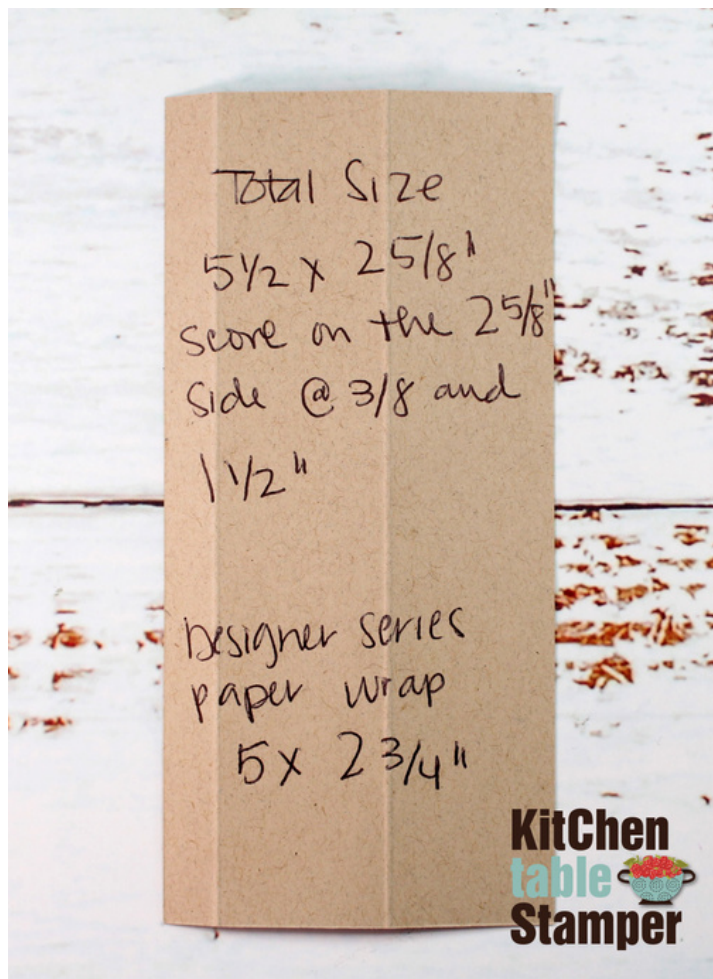 Total Size
5 1/2 x 2 5/8"
score on the 2 5/8"
side @ 3/8 and
1 1/2"
Designer series
paper wrap
5 x 2 3/4"
KitChen
table
Stamper